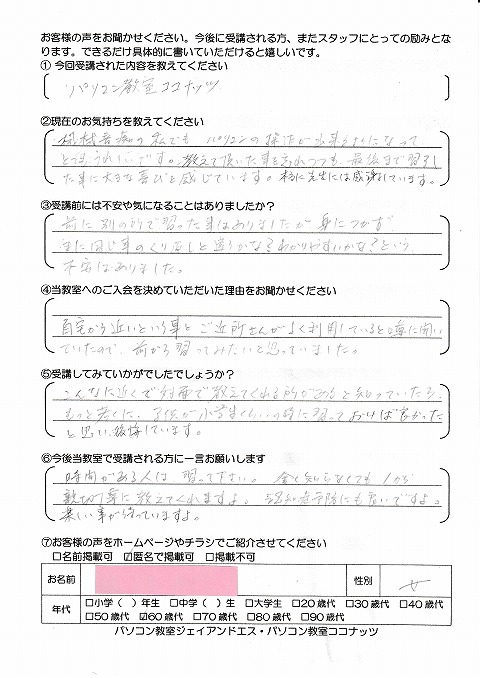 お客様の声をお聞かせください。今後に受講される方、またスタッフにとっての励みとな
ります。できるだけ具体的に書いていただけると嬉しいです。
① 今回受講された内容を教えてください
パソコン教室ココナッツ
②現在のお気持ちを教えてください
機械音痴の私でも パソコンの操作が出来る様になって
とてもうれしいです。教えて頂いた事を忘れつつも、最後まで習得し
た事に大きな喜びを感じています。本当に先生には感謝しています。
③受講前には不安や気になることはありましたか?
前に別の所で習った事はありましたが身につかず
また同じ事のくり返しと違うかな?わかりやすいかな?という
不安はありました。
④当教室へのご入会を決めていただいた理由をお聞かせください
自宅から近いという事と ご近所さんがよく利用していると噂に聞い
ていたので、前から習ってみたいと思っていました。
⑤受講してみていかがでしたでしょうか?
こんなに近くで対面で教えてくれる所があると知っていたら、
もっと若くに、子供が小学生くらいの時に習っておけば良かった
と思い、後悔しています。
⑥今後当教室で受講される方に一言お願いします
時間がある人は 習って下さい。全く知らなくても 1から
親切丁寧に教えてくれますよ。認知症予防にも良いですよ。
楽しい事が待っていますよ。
⑦お客様の声をホームページやチラシでご紹介させてください
□名前掲載可 ☑匿名で掲載可 □掲載不可
お名前 性別 女
年代 □小学（ ）年生 □中学（ ）生 □大学生 □20歳代 □30歳代 □40歳代
□50歳代 ☑60歳代 □70歳代 □80歳代 □90歳代
パソコン教室ジェイアンドエス・パソコン教室ココナッツ